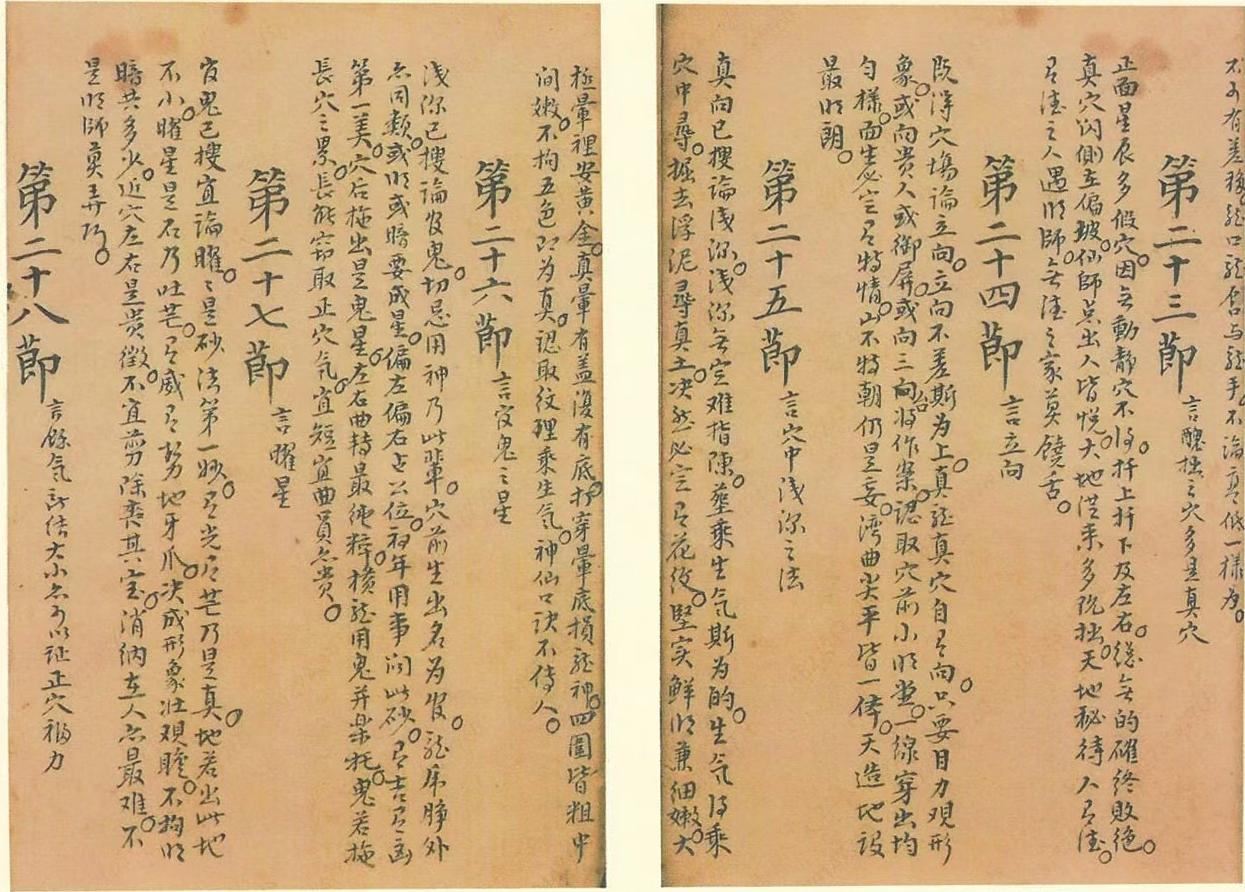 不可有差移龍口龍唇与龍手不論高低一樣為
第二十三節 言醜拙之穴多是真穴
正面星辰多假穴因無動靜穴不得扦上扦下及左右總無的確終敗絕
真穴閃側在偏坡仙師点出人皆悅大地從來多巧拙天地秘待人有德
有德之人遇明師無德之家莫饒舌
第二十四節 言立向
既得穴場論立向立向不差斯為上真龍真穴自有向只要目力观形
象或向贵人或御屏或向三台将作案認取穴前小明堂一線穿出均
勻樣面生必定有特情山不特朝仍是妄湾曲尖平皆一倖天造地設
最明朗
第二十五節 言穴中浅深之法
真向已搜論浅深浅深無定难指陳葬乘生气斯为的生气得乘
穴中尋掘去浮泥尋真土决然必定有花纹堅实鮮明兼细嫩大
極暈裡安黄金真暈有盖復有底打穿暈底損龍神四圍皆粗中
间嫩不拘五色即为真認取纹理乘生气神仙口诀不傳人
第二十六節 言官鬼之星
浅深已搜論官鬼切忌用神乃此輩穴前生出名为官龍虎肘外
亦同類或明或暗要成星偏左偏右占公位初年用事问此砂有吉有凶
第一美穴后拖出是鬼星左右曲转最纯粹横龍用鬼并樂托鬼若拖
長穴之累長能窃取正穴气宜短宜曲員亦贵
第二十七節 言曜星
官鬼已搜宜論曜々是砂法第一妙有光有芒乃是真地若出此地
不小曜星是石乃吐芒有威有势地牙爪决成形象壮观瞻不拘明
暗共多少近穴左右是贵徵不宜剪除弃其宝消納在人亦最难不
是明師莫弄巧
第二十八節 言餘气話結大小亦可以証正穴福力